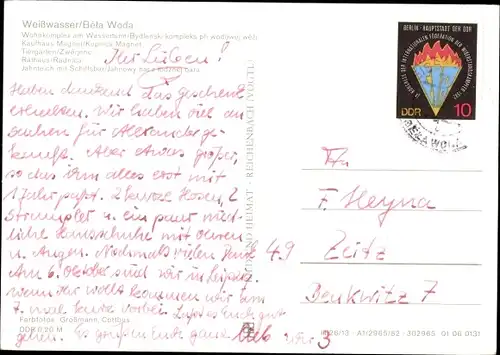 Weißwasser/Běła Woda
Wohnkomplex am Wasserturm/Bydlenski kompleks při wodowej wěži
Kaufhaus Magnet/Kupnica Magnet
Tiergarten/Zwěrjenc
Rathaus/Radnica
Jahnteich mit Schiffsbar/Jahnowy hat z łódźnej baru
Ihr Lieben!
Haben dankend das Geschenk
erhalten. Wir haben viel an
Sachen für Alexander ge-
kauft. Aber etwas größer,
so das ihm alles erst mit
1 Jahr passt. 2 kurze Hosen, 2
Strampler u. ein paar nied-
liche Handschuhe mit Ohren
u. Augen. Nochmals vielen Dank
Am 6. Oktober sind wir in Leipzig
wenn der wollt kommen wir am
7. mal kurz vorbei. Laßt es Euch gut
gehen. Es grüßen Euch ganz lieb
BILD UND HEIMAT · REICHENBACH (VOGTL)
BERLIN · HAUPTSTADT DER DDR
DDR 10
BĚŁA WODA
Fa.
F. Heyna
49 Zeitz
Benkwitz 7
Nr 3
Farbfotos: Großmann, Cottbus
DDR 0,20 M
A1/2965/82 · 302965 01 06 0131